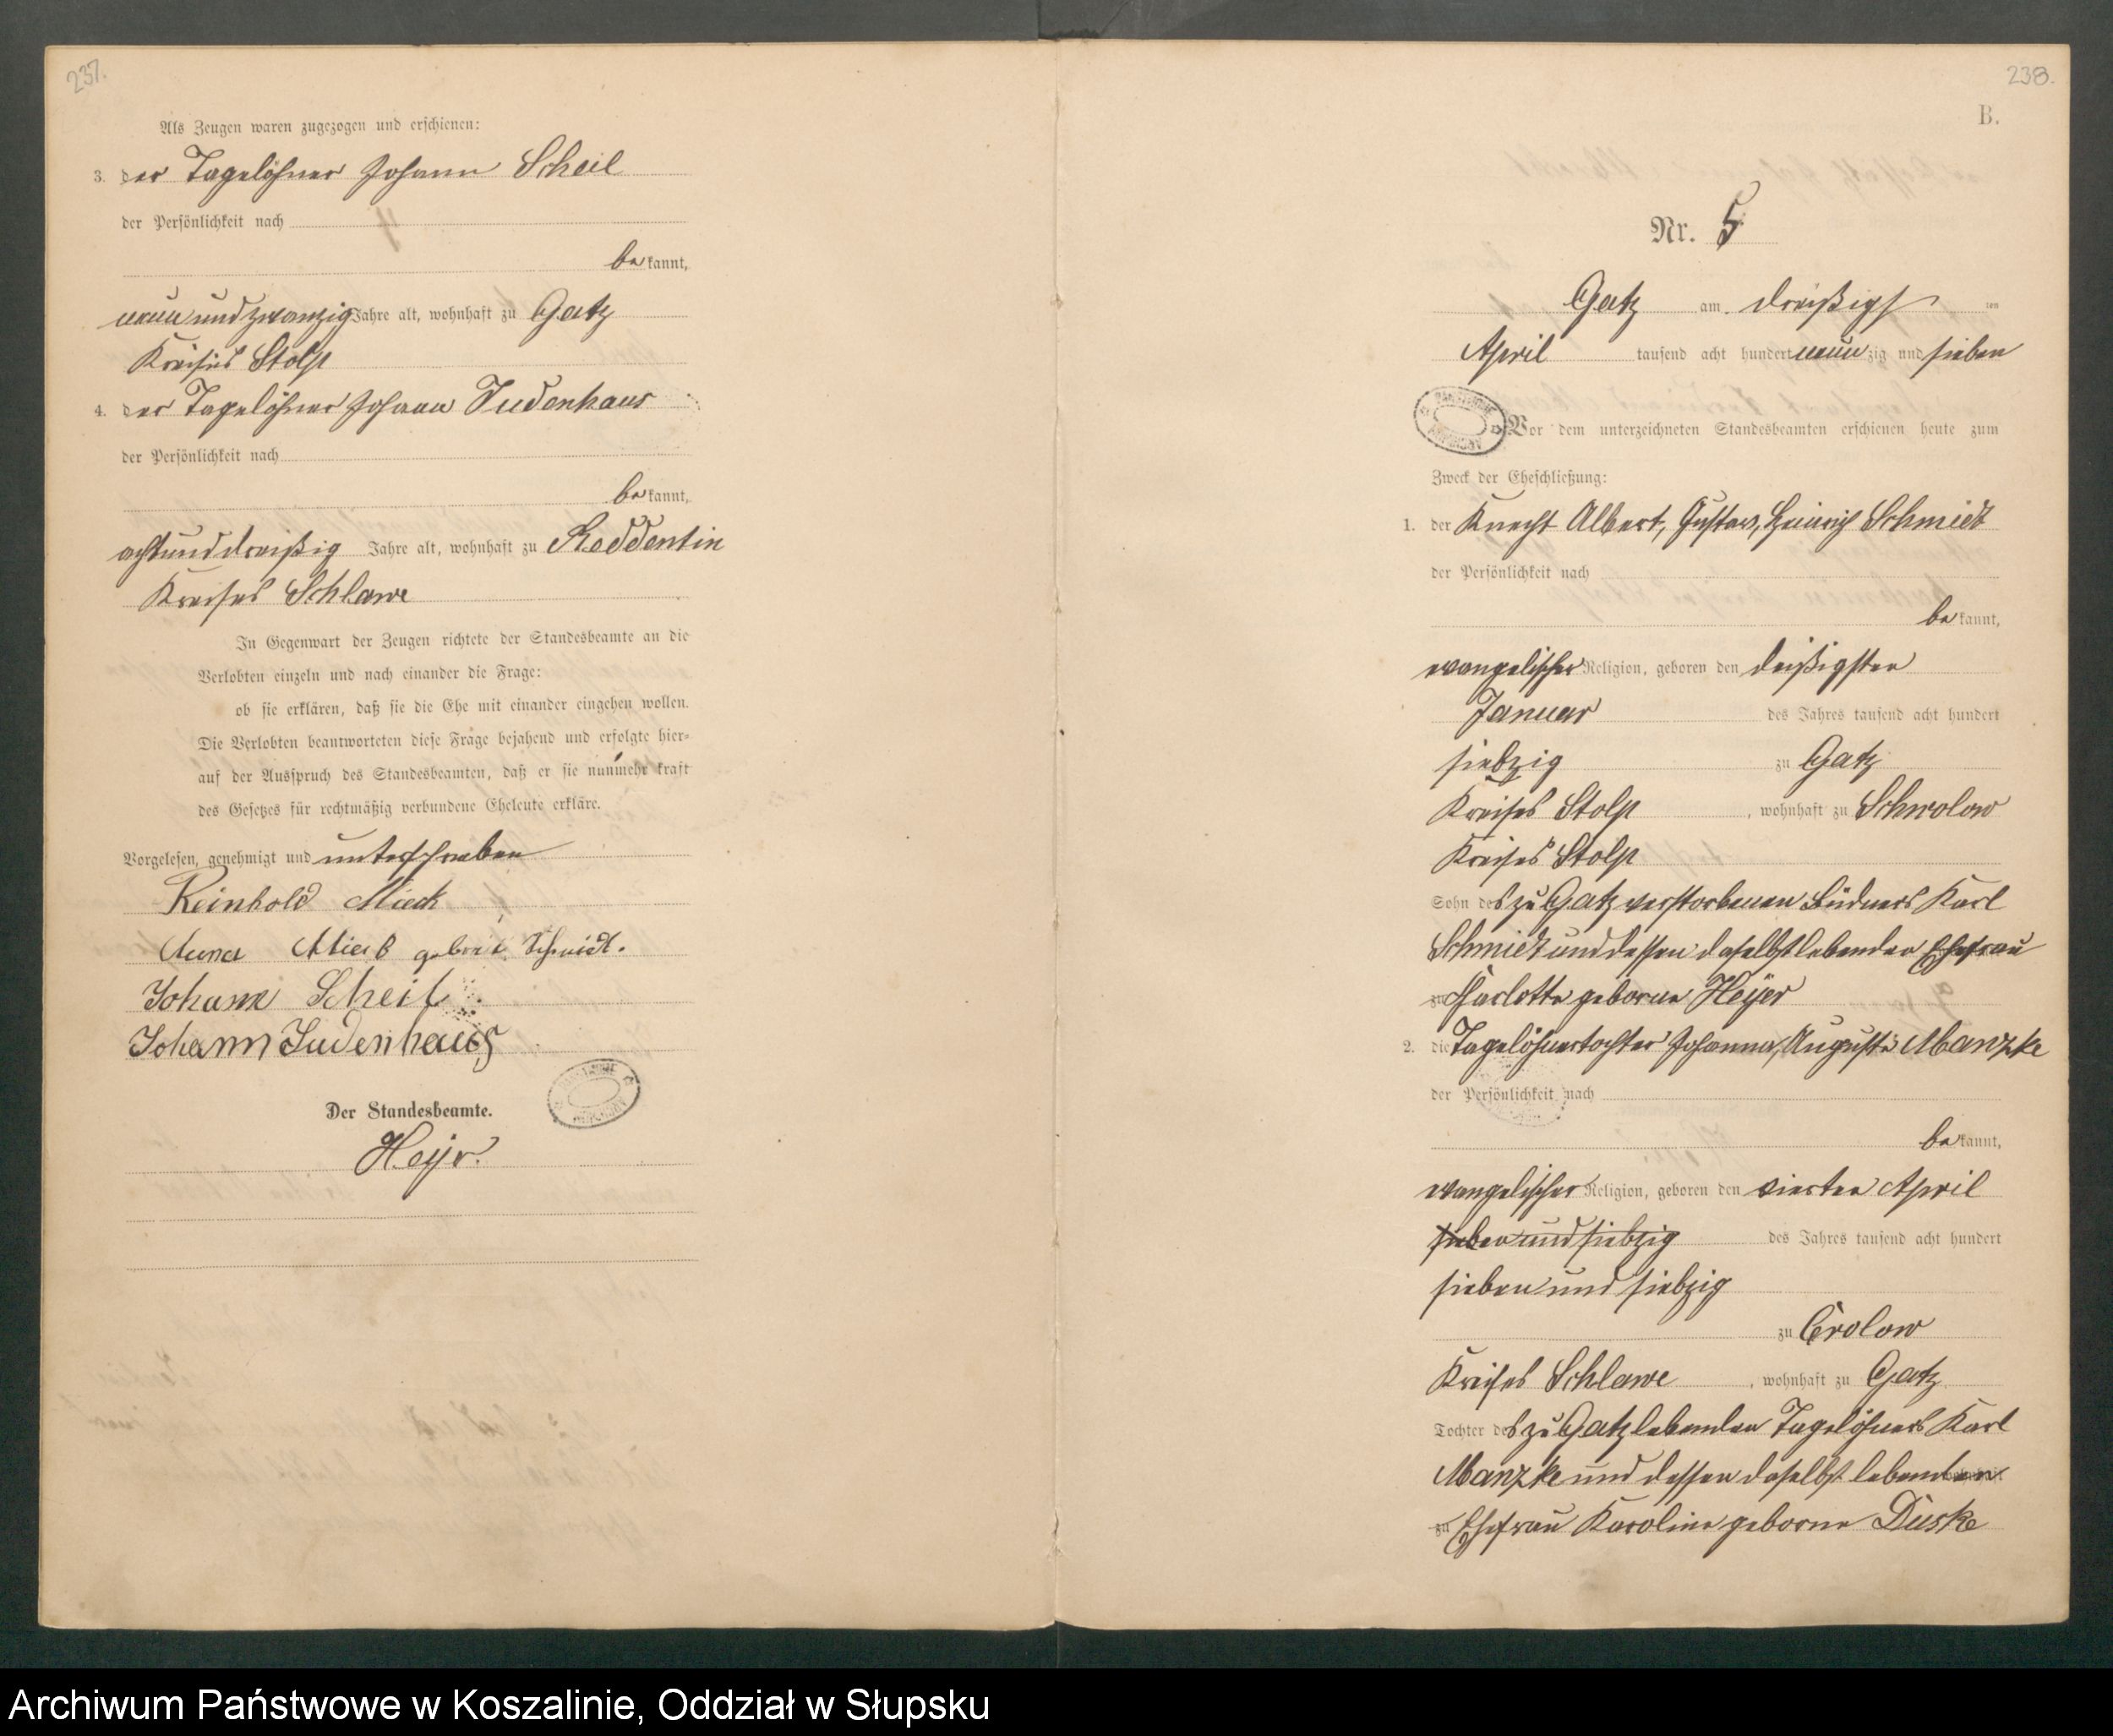 237.
Als Zeugen waren zugezogen und erschienen:
3. der Tagelöhner Johann Scheil
der Persönlichkeit nach
bekannt,
neunundzwanzig Jahre alt, wohnhaft zu Gatz
Kreises Stolp
4. der Tagelöhner Johann Judenhaus
der Persönlichkeit nach
bekannt,
achtunddreißig Jahre alt, wohnhaft zu Reddentin
Kreises Schlawe
In Gegenwart der Zeugen richtete der Standesbeamte an die
Verlobten einzeln und nach einander die Frage:
ob sie erklären, daß sie die Ehe mit einander eingehen wollen.
Die Verlobten beantworteten diese Frage bejahend und erfolgte hier-
auf der Ausspruch des Standesbeamten, daß er sie nunmehr kraft
des Gesetzes für rechtmäßig verbundene Eheleute erkläre.
Vorgelesen, genehmigt und unterschrieben
Reinhold Mieck
Anna Mieck geboren Schmidt.
Johann Scheil
Johann Judenhaus
Der Standesbeamte.
Heyer.
238.
B.
Nr. 5
Gatz am dreißigsten
April tausend acht hundert neunzig und sieben
Vor dem unterzeichneten Standesbeamten erschienen heute zum
Zweck der Eheschließung:
1. der Knecht Albert, Gustav, Heinrich Schmidt
der Persönlichkeit nach
bekannt,
evangelischer Religion, geboren den dreißigsten
Januar des Jahres tausend acht hundert
siebzig zu Gatz
Kreises Stolp, wohnhaft zu Schwolow
Kreises Stolp
Sohn des zu Gatz verstorbenen Büdners Karl
Schmidt und dessen daselbst lebenden Ehefrau
zu Charlotte geborne Heyer
2. die Tagelöhnertochter Johanna, Auguste Manzke
der Persönlichkeit nach
bekannt,
evangelischer Religion, geboren den vierten April
sieben und siebzig des Jahres tausend acht hundert
sieben und siebzig
zu Crolow
Kreises Schlawe, wohnhaft zu Gatz
Tochter des zu Gatz lebenden Tagelöhners Karl
Manzke und dessen daselbst lebenden
zu Ehefrau Karoline geborne Duske
Archiwum Państwowe w Koszalinie, Oddział w Słupsku